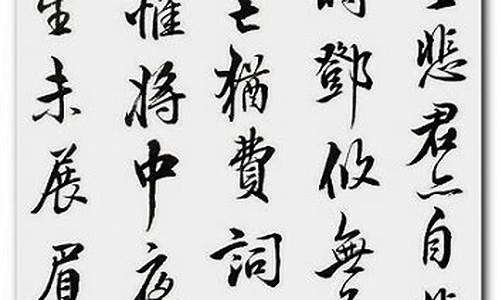 悲君亦自
時鄧攸無
亡猶費詞
惟將中夜
生未展眉